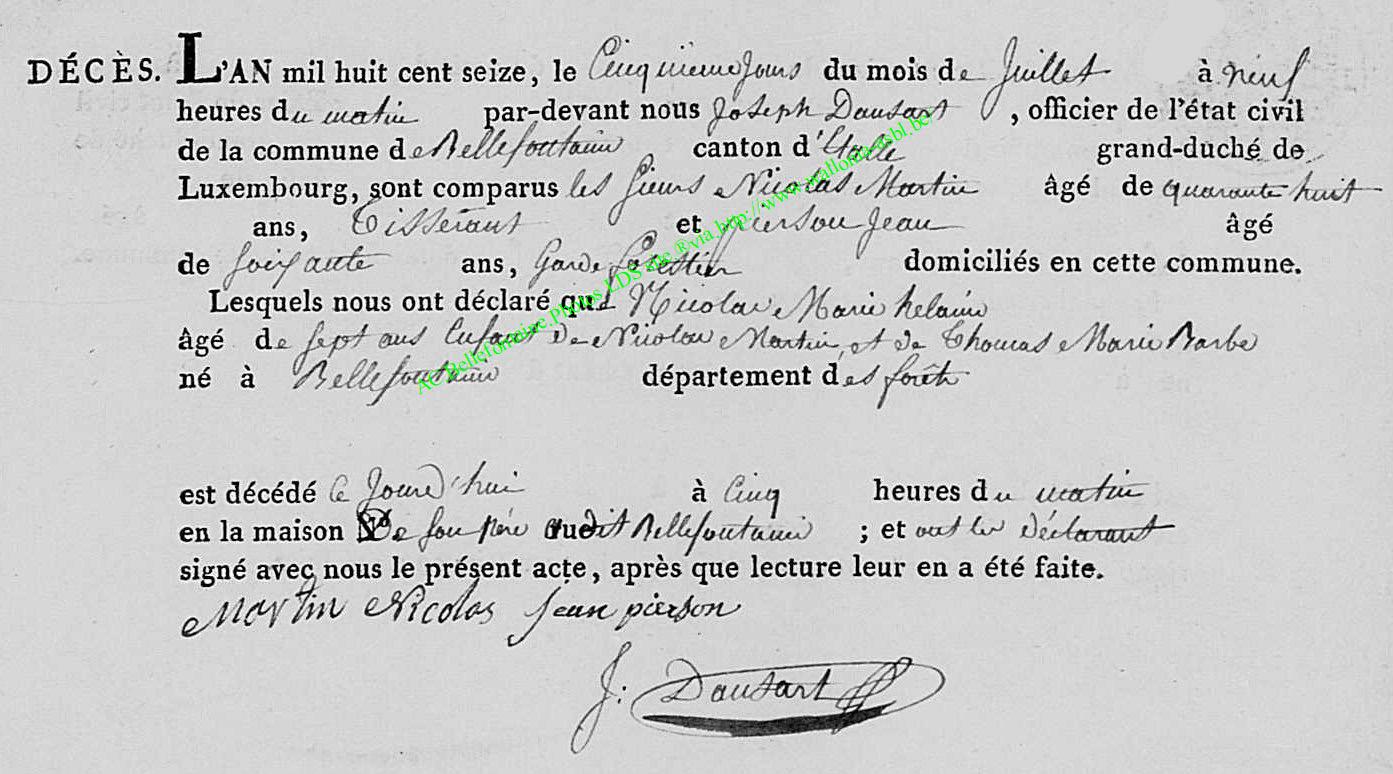 DÉCÈS. L'AN mil huit cent seize, le Cinquieme Jours du mois de Juillet à neuf
heures du matin par-devant nous Joseph Dausart, officier de l'état civil
de la commune de Bellefontaine canton d'Etalle grand-duché de
Luxembourg, sont comparus les Sieurs Nicolas Martin âgé de quarante huit
ans, Tisserant et pierson Jean âgé
de soixante ans, Garde forestier domiciliés en cette commune.
Lesquels nous ont déclaré que Nicolas Marie helaine
âgé de sept ans Enfant de Nicolas Martin et de Thomas Marie Barbe
né à Bellefontaine département des forêts
est décédé Ce Jourd'hui à Cinq heures du matin
en la maison De son père audit Bellefontaine ; et ont les Déclarant
signé avec nous le présent acte, après que lecture leur en a été faite.
Martin Nicolas Jean pierson
J: Dausart
AC Bellefontaine Photos LDS ®via http://www.wallonia-asbl.be/